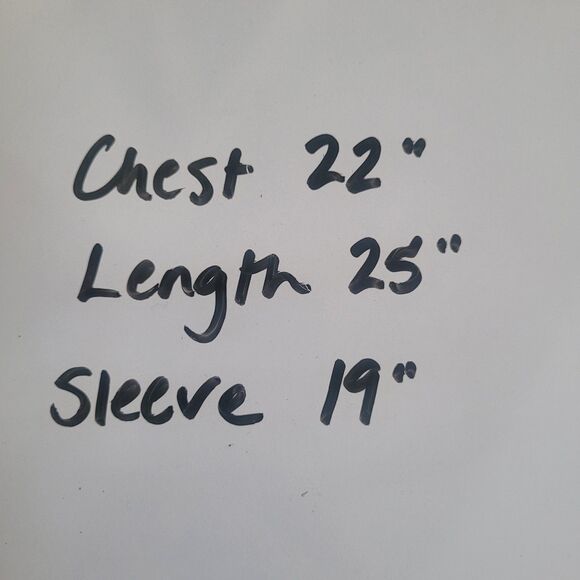 Chest 22"
Length 25"
Sleeve 19"